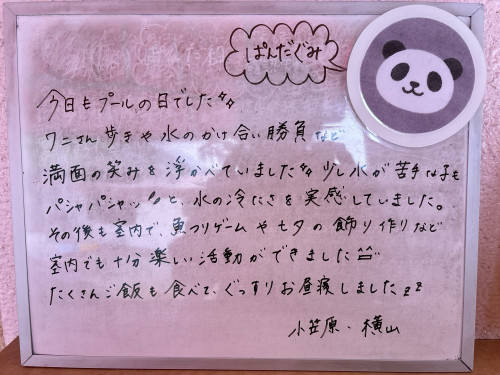 ぱんだぐみ
今日もプールの日でした
ワニさん歩きや水のかけ合い勝負など
満面の笑みを浮かべていました 少し水が苦手な子も
パシャパシャッと、水の冷たさを実感していました。
その後も室内で、魚つりゲームや七夕の飾り作りなど
室内でも十分楽しい活動ができました
たくさんご飯も食べて、ぐっすりお昼寝しました zz
小笠原・横山